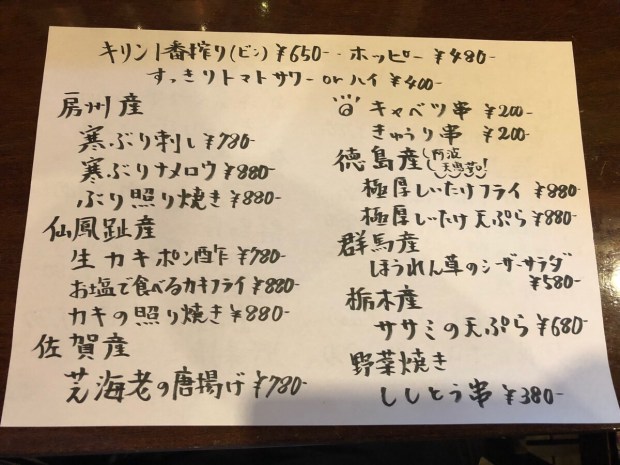 キリン1番搾り(ビン)¥650-・ホッピー¥480-
すっきりトマトサワーorハイ ¥400-
房州産
寒ぶり刺し¥780-
寒ぶりナメロウ¥880-
ぶり照り焼き¥880-
仙鳳趾産
生カキポン酢¥780-
お塩で食べるカキフライ¥880-
カキの照り焼き¥880-
佐賀産
芝海老の唐揚げ¥780-
キャベツ串 ¥200-
きゅうり串 ¥200-
徳島産
阿波
天恵茹!
極厚しいたけフライ ¥880-
極厚しいたけ天ぷら¥880-
群馬産
ほうれん草のシーザーサラダ
¥580-
栃木産
ササミの天ぷら¥680-
野菜焼き
ししとう串 ¥380-